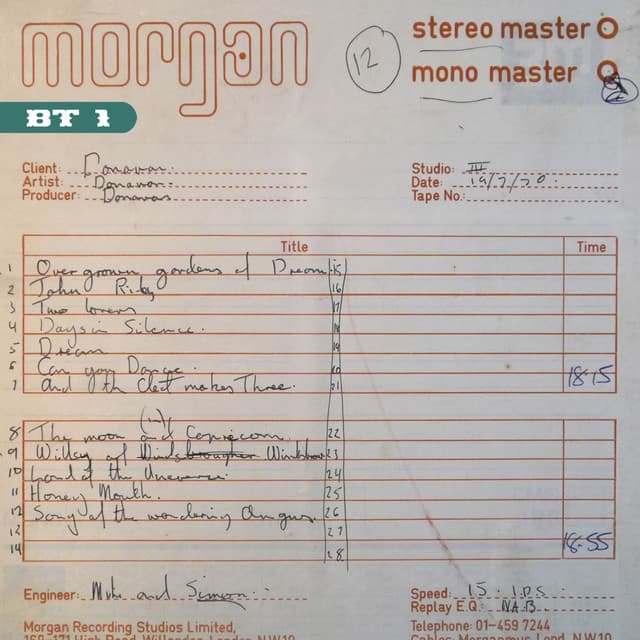 morgan
stereo master
12
mono master
BT 1
Client: Donovan.
Artist: Donovan.
Producer: Donovan
Studio: III
Date: 19/7/70.
Tape No.:
Title
Time
1 Overgrown gardens of Dream 15
2 John Riley 16
3 Two lovers 17
4 Days in Silence. 18
5 Dream 19
6 Can you Dance. 20
7 And the Cleft makes Three. 21
18-15
(in)
8 The moon and Capricorn. 22
9 Willey of Winkhow 23
10 Land of the Universe. 24
11 Honey Mouth. 25
12 Song of the wondering Angus. 26
12 27
14 28
18-55
Engineer: Mike and Simon.
Speed: 15 I.P.S
Replay E.Q: N.A.B.
Morgan Recording Studios Limited,
Telephone: 01-459 7244
169-171 High Road, Willesden, London, N.W.10
Cables: Morganmus London N.W.